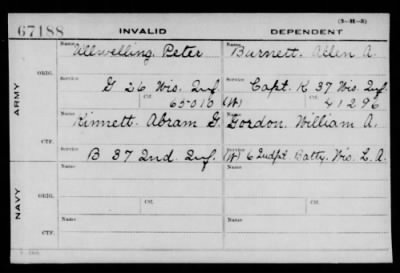 (3-H-3)
67188 INVALID DEPENDENT
Name Name
Ullwelling, Peter Burnett, Allen A.
ORIG.
Service Service
G 26 Wis. Inf. Capt. K 37 Wis. Inf.
Ctf. Ctf.
65010 (W) 41296
ARMY
Name Name
Kinnett, Abram G. Gordon, William A.
CTF.
Service Service
B 37 Ind. Inf. (W) 6 Indpt Batty. Wis. L. A.
Name Name
ORIG.
Service Ctf. Service Ctf.
NAVY
Name Name
CTF.
Service Service